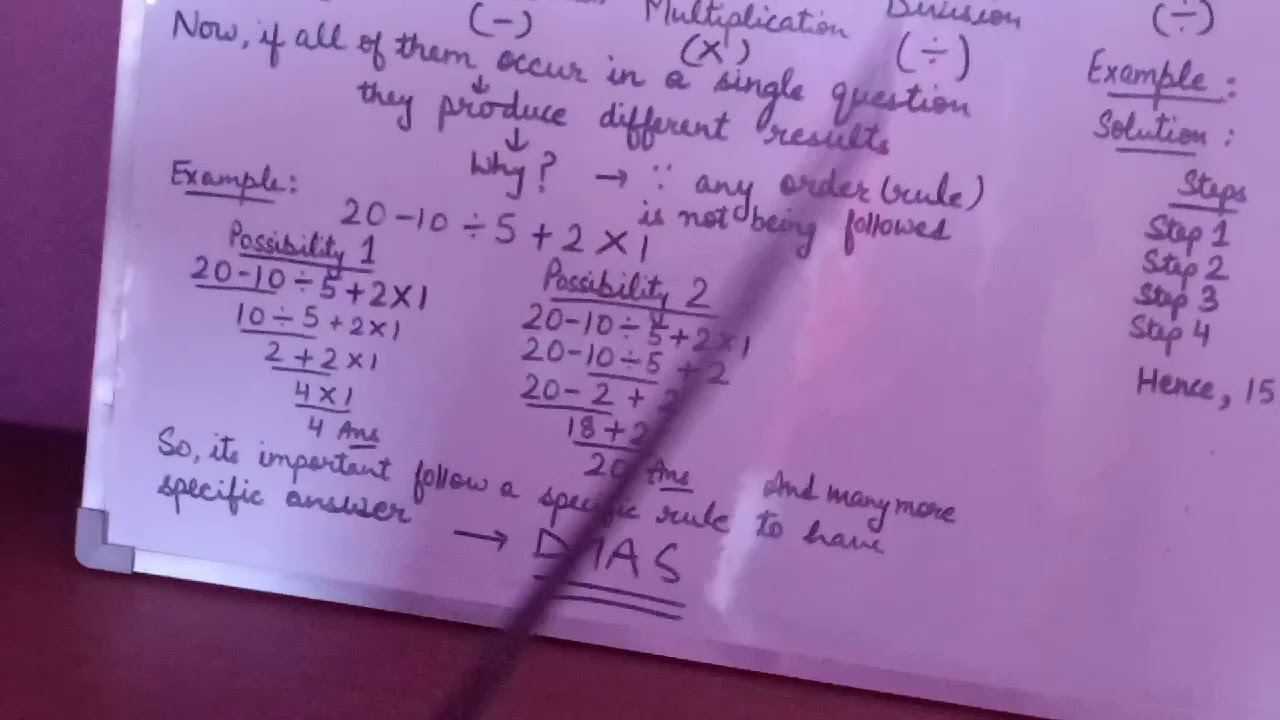 Multiplication Division
(−) (×) (÷) (÷)
Now, if all of them occur in a single question
they produce different results
↓
Why? → ∵ any order (rule)
is not being followed
Example:
20-10÷5+2×1
Possibility 1
20-10÷5+2×1
10÷5+2×1
2+2×1
4×1
4 Ans
Possibility 2
20-10÷5+2×1
20-10÷5+2
20-2+2
18+2
20 Ans And many more
So, its important follow a specific rule to have
specific answer → DMAS
Example:
Solution:
Steps
Step 1
Step 2
Step 3
Step 4
Hence, 15